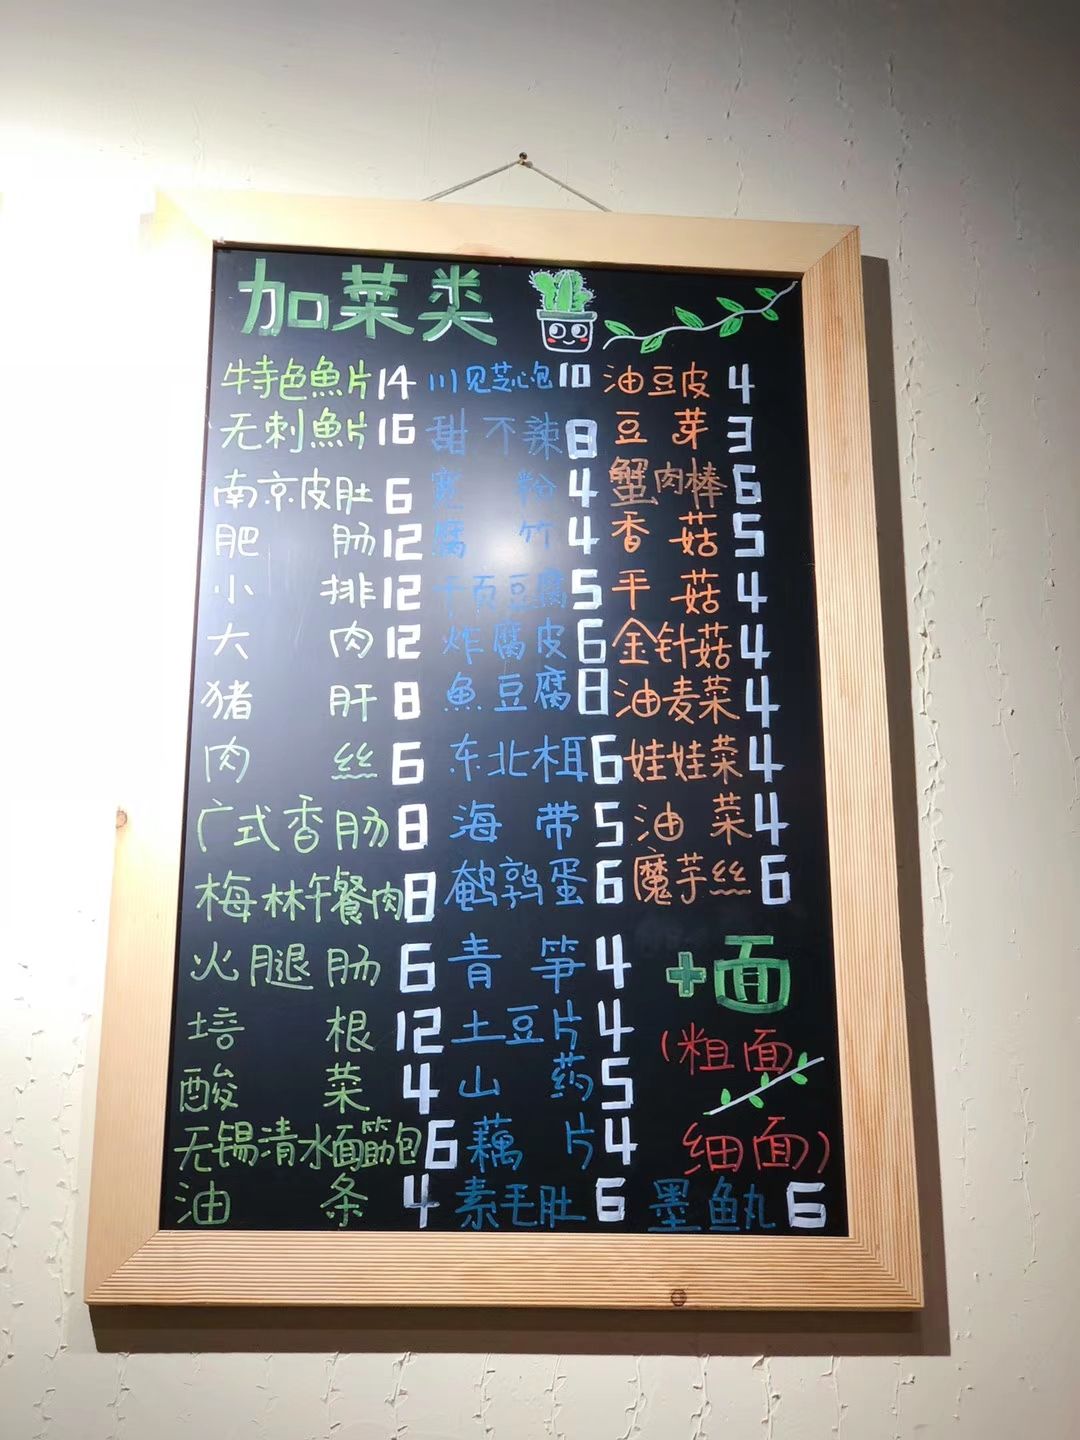 加菜类
特色魚片14
无刺魚片16
南京皮肚6
肥肠12
小排12
大肉12
猪肝8
肉丝6
广式香肠8
梅林午餐肉8
火腿肠6
培根12
酸菜4
无锡清水面筋包6
油条4
川见芝心包10
甜不辣8
宽粉4
腐竹4
千页豆腐5
炸腐皮6
魚豆腐8
东北栮6
海带5
鹌鹑蛋6
青笋4
土豆片4
山药5
藕片4
素毛肚6
油豆皮4
豆芽3
蟹肉棒6
香菇5
平菇4
金针菇4
油麦菜4
娃娃菜4
油菜4
魔芋丝6
+面
(粗面
细面)
墨鱼丸6